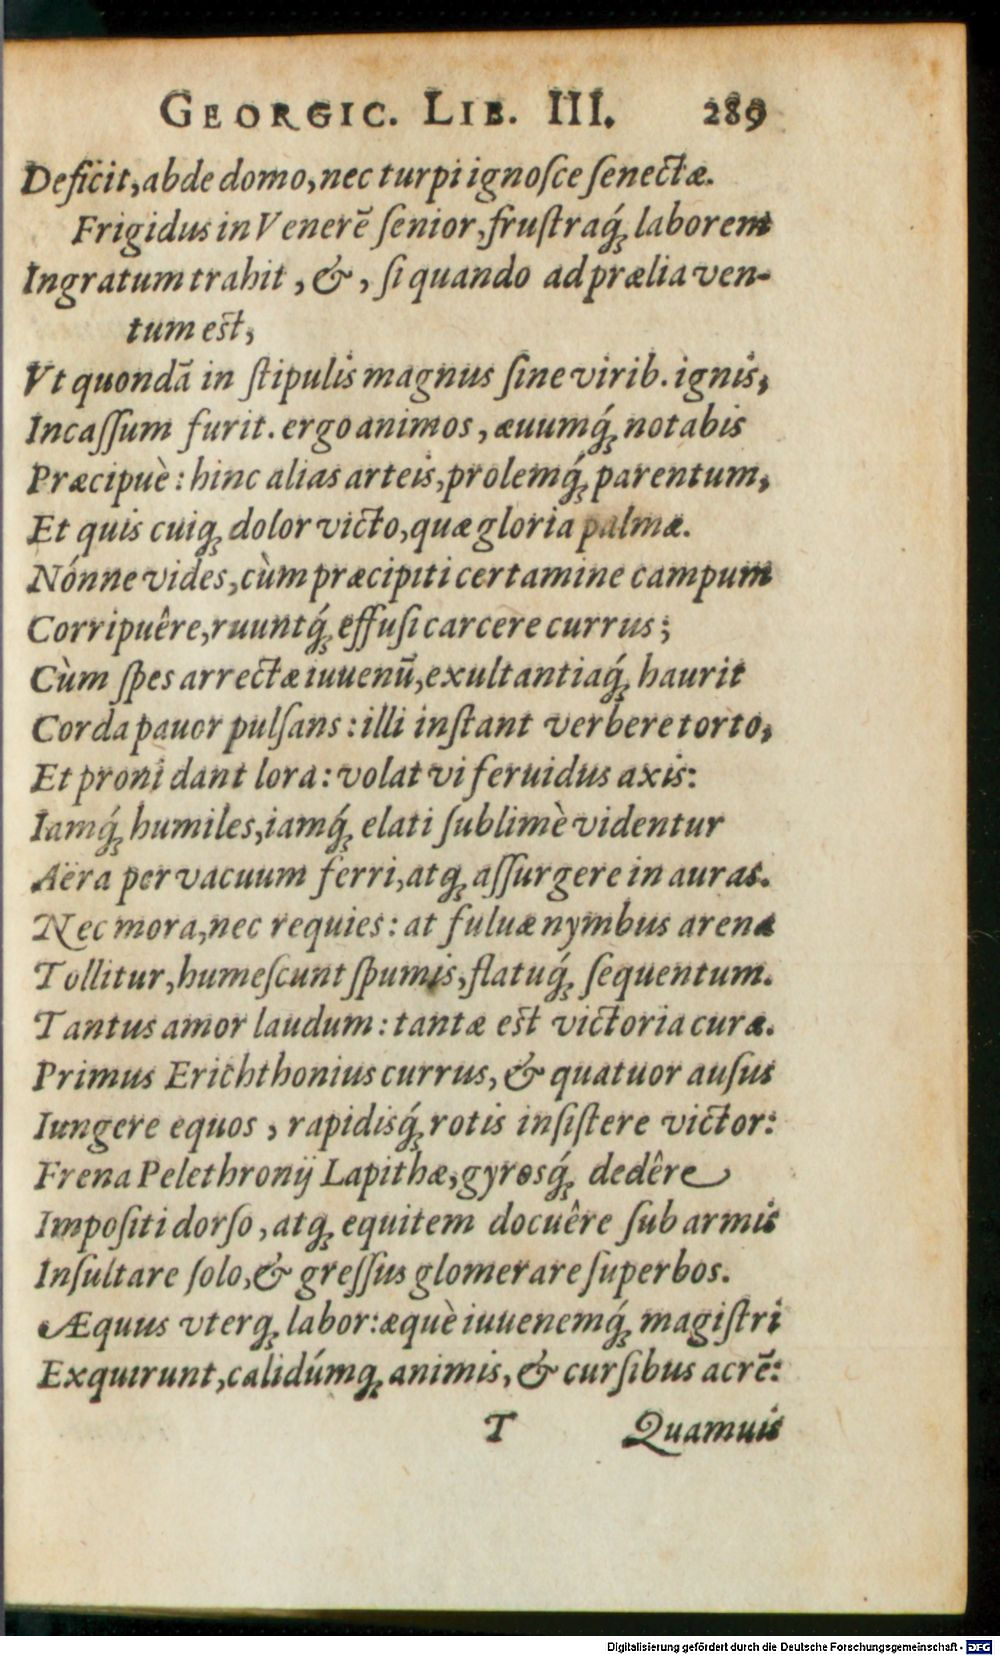 GEORGIC. LIB. III. 289
Deficit, abde domo, nec turpi ignoſce ſenectæ.
Frigidus in Venerē ſenior, fruſtraq́; laborem
Ingratum trahit, &, ſi quando ad prælia ven-
tum est,
Vt quondā in ſtipulis magnus ſine virib. ignis,
Incaſſum furit. ergo animos, æuumq́; notabis
Præcipuè: hinc alias arteis, prolemq́; parentum,
Et quis cuiq; dolor victo, quæ gloria palmæ.
Nónne vides, cùm præcipiti certamine campum
Corripuêre, ruuntq́; effuſi carcere currus;
Cùm ſpes arrectæ iuuenū, exultantiaq́; haurit
Corda pauor pulſans: illi inſtant verbere torto,
Et proni dant lora: volat vi feruidus axis:
Iamq́; humiles, iamq́; elati ſublimè videntur
Aëra per vacuum ferri, atq; aſſurgere in auras.
Nec mora, nec requies: at fuluæ nymbus arenæ
Tollitur, humeſcunt ſpumis, flatuq́; ſequentum.
Tantus amor laudum: tantæ est victoria curæ.
Primus Erichthonius currus, & quatuor auſus
Iungere equos, rapidisq́; rotis inſiſtere victor:
Frena Pelethronij Lapithæ, gyrosq́; dedêre
Impoſiti dorſo, atq; equitem docuêre ſub armis
Inſultare ſolo, & greſſus glomerare ſuperbos.
Æquus vterq; labor: æquè iuuenemq́; magiſtri
Exquirunt, calidúmq; animis, & curſibus acrē:
T Quamuis
Digitalisierung gefördert durch die Deutsche Forschungsgemeinschaft - DFG